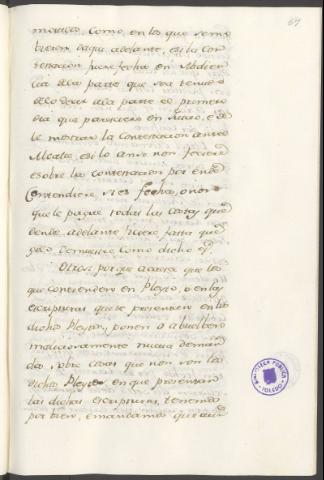 69
movido, Como en los que se mo
bieren daqui adelante, e si la con
testacion fuere fecha en Abdien
cia dela parte que sea tenudo
delo decir ala parte el primero
dia que paresciere en Juicio, e de
le mostrar la Contestacion ante
Alcalde, e si lo ansi non ficiere
e sobre la contestacion por ende
Contendiere si es fecha, o non
que le pague todas las Costas que
dende adelante ficiere fasta que
gelo Demuestre como dicho es.
Otrosi porque acaesce que los
que contienden en Pleyto, o en las
escripturas que se presentan en los
dichos Pleytos, ponen o abuelben
maliciosamente nuevas deman
das, sobre cosas que non son los
dichos Pleytos en que presentan
las dichas escripturas, tenemos
por bien, e mandamos que aun
BIBLIOTECA PUBLICA
TOLEDO